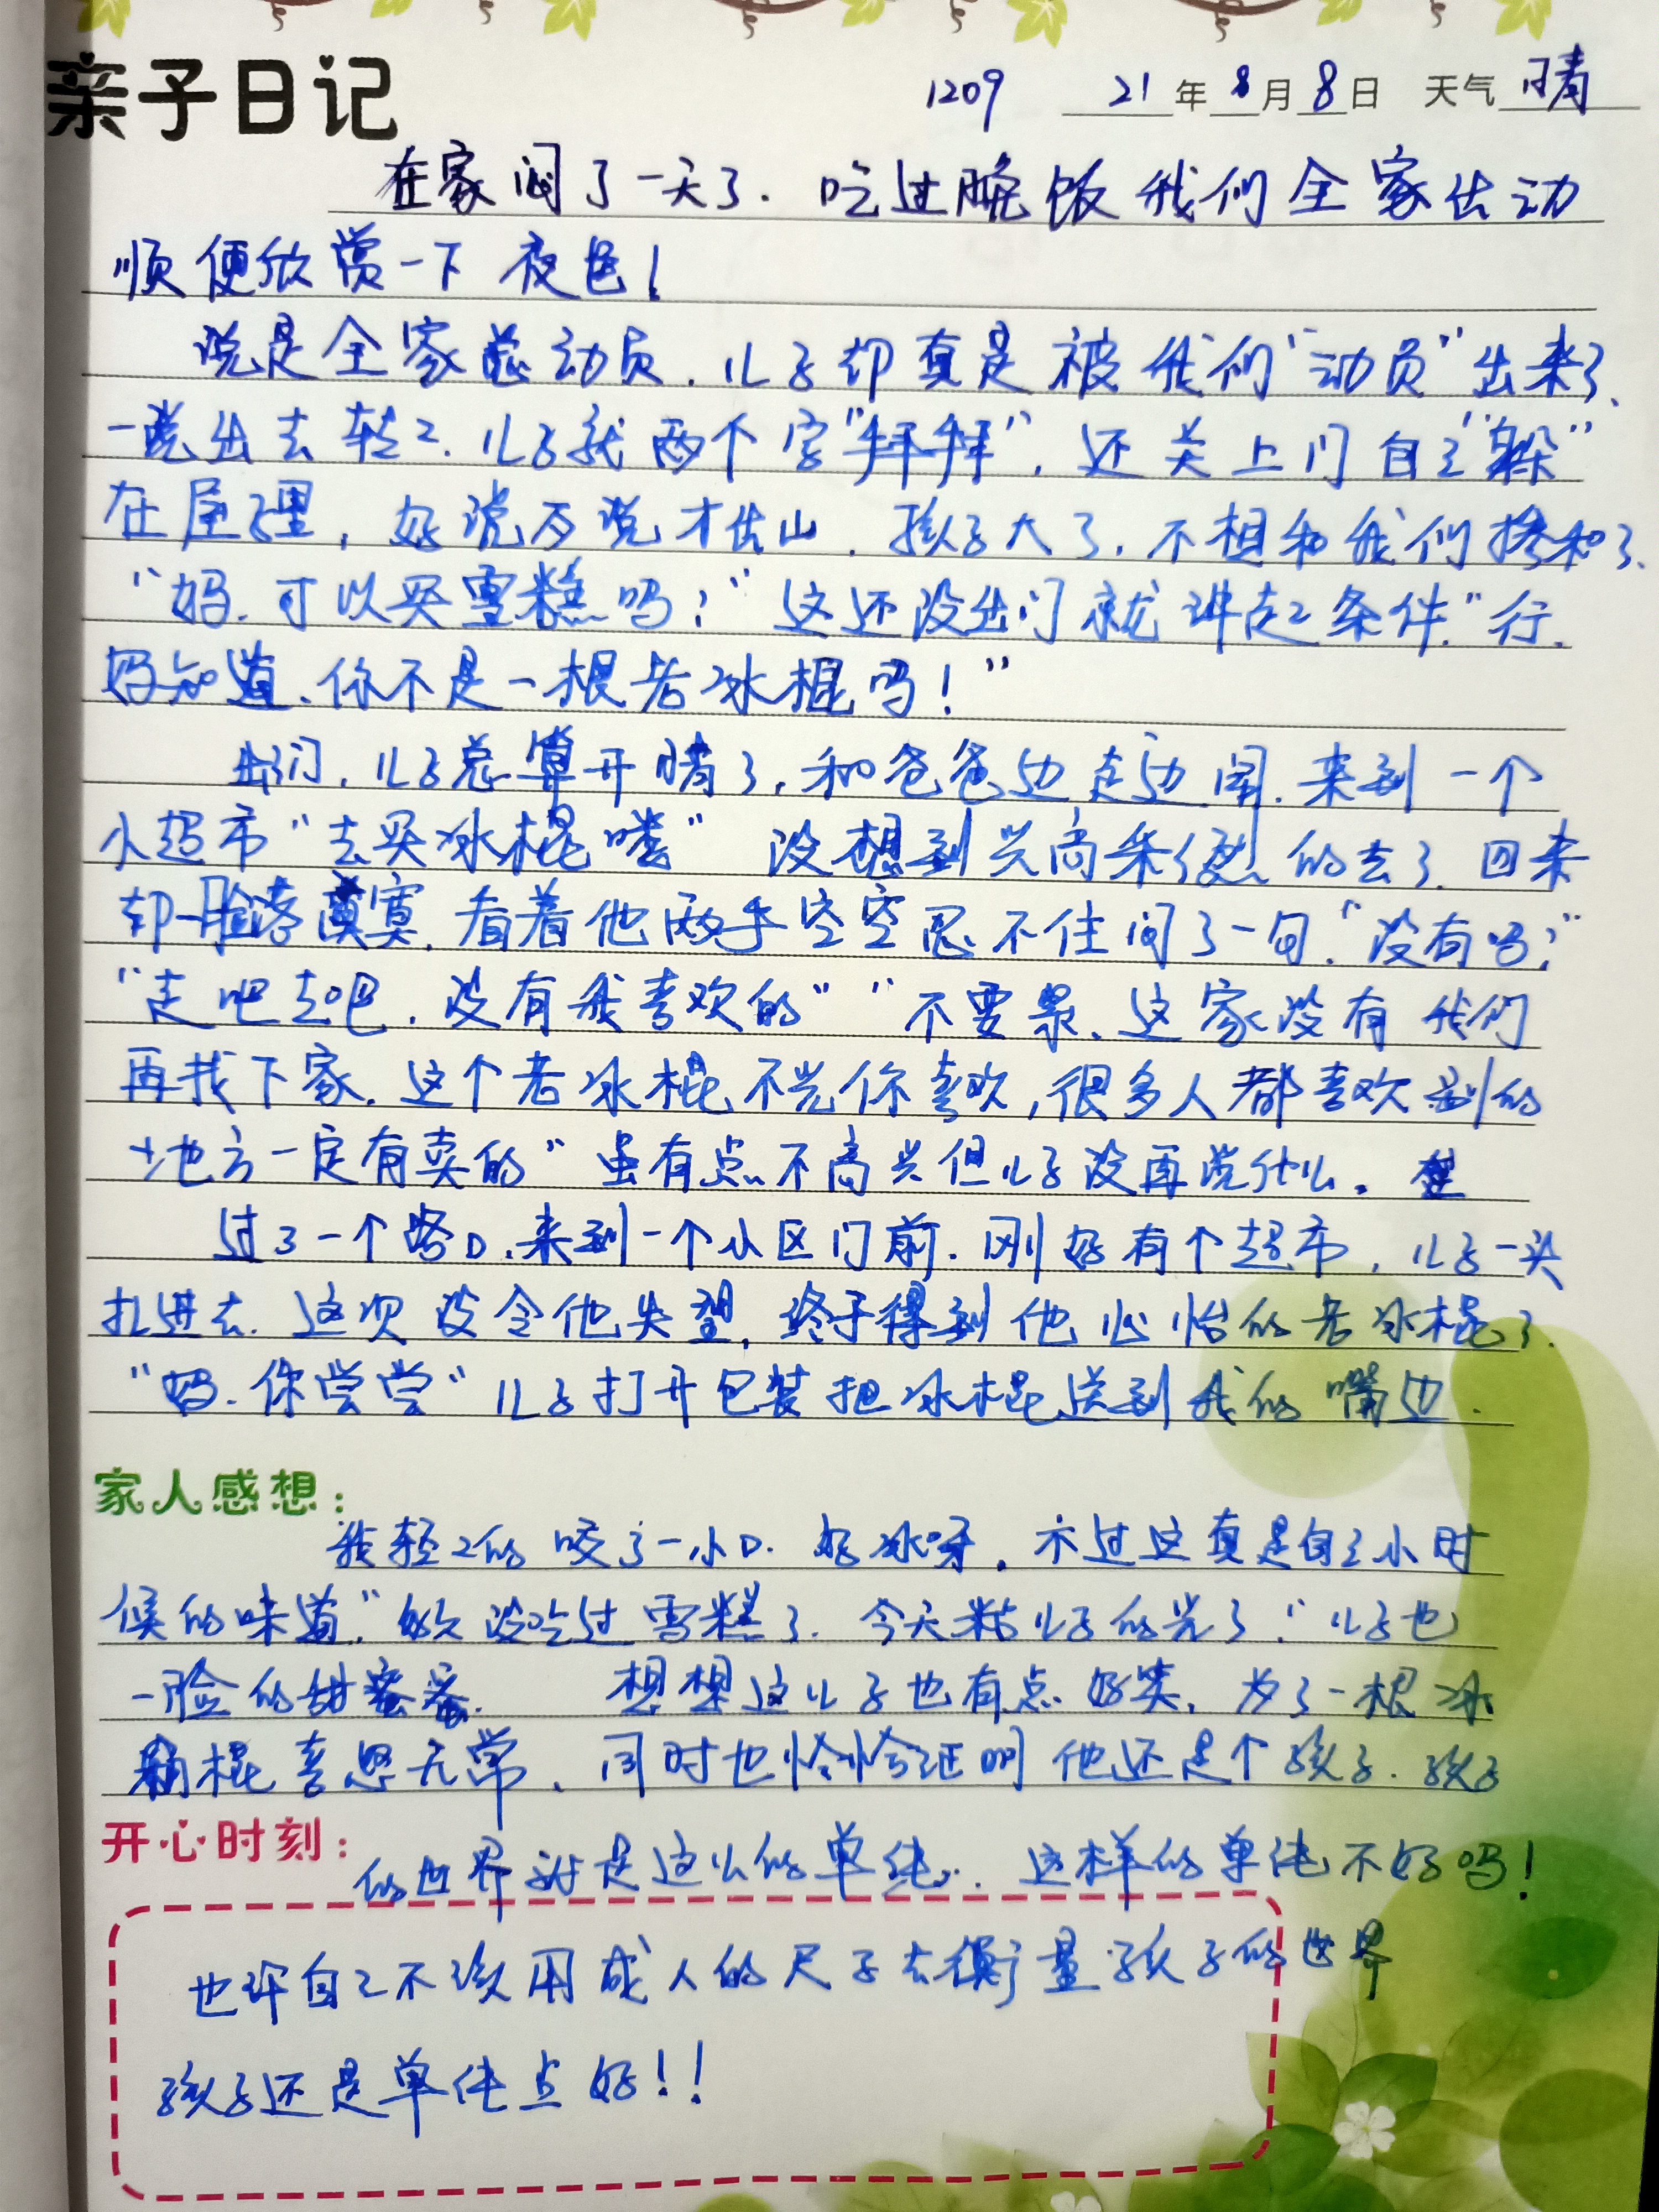 亲子日记 1209 21年8月8日 天气 晴
在家闷了一天了.吃过晚饭我们全家出动
顺便欣赏一下夜色!
说是全家总动员.儿子却真是被我们"动员"出来了.
一说出去转々.儿子就两个字"拜拜",还关上门自己"躲"
在屋里,好说歹说才出山.孩子大了,不想和我们掺和了.
"妈.可以买雪糕吗?"这还没出门就讲起条件."行.
妈知道.你不是一根老冰棍吗!"
出门,儿子总算开晴了,和爸爸边走边闹.来到一个
小超市"去买冰棍喽"没想到兴高采烈的去了.回来
却一脸落寞.看着他两手空空忍不住问了一句."没有吗?"
"走吧走吧.没有我喜欢的""不要紧、这家没有我们
再找下家.这个老冰棍不光你喜欢,很多人都喜欢别的
地方一定有卖的"虽有点不高兴但儿子没再说什么.
过了一个路口.来到一个小区门前.刚好有个超市,儿子一头
扎进去.这次没令他失望,终于得到他心怡的老冰棍了.
"妈.你尝尝"儿子打开包装把冰棍送到我的嘴边.
家人感想:
我轻々的咬了一小口.好冰呀.不过这真是自己小时
候的味道."好久没吃过雪糕了.今天粘儿子的光了!"儿子也
一脸的甜蜜蜜.想想这儿子也有点好笑.为了一根冰
棍喜怒无常.同时也恰恰证明他还是个孩子.孩子
开心时刻:
的世界就是这么的单纯..这样的单纯不好吗!
也许自己不该用成人的尺子去衡量孩子的世界
孩子还是单纯点好!!